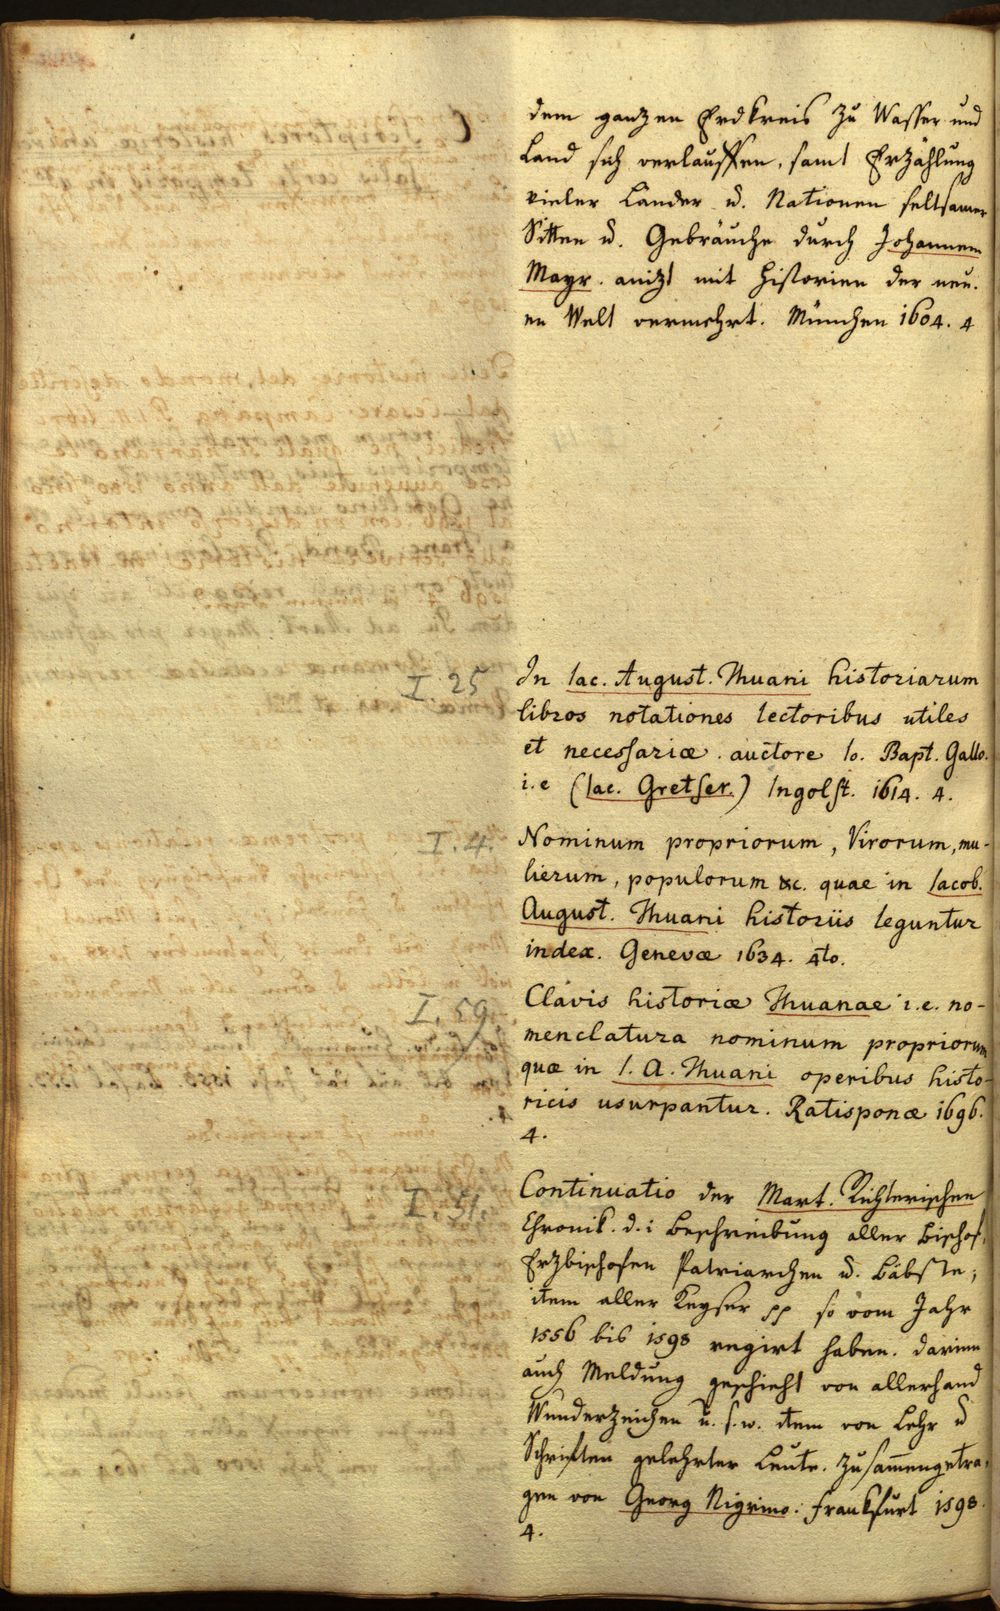 dem ganzen Erdkreis zu Wasser und
Land sich verlauffen, samt Erzählung
vieler Länder u. Nationen seltsamer
Sitten u. Gebräuche durch Johannem
Mayr. anizt mit Historien der neu.
en Welt vermehrt. München 1604. 4
I. 25
In Iac. August. Thuani historiarum
libros notationes lectoribus utiles
et necessariæ. auctore Io. Bapt. Gallo.
i.e (Iac. Gretser.) Ingolst. 1614. 4.
I. 4.
Nominum propriorum, Virorum, mu-
lierum, populorum &c. quae in Iacob.
August. Thuani historiis leguntur
index. Genevæ 1634. 4to.
I. 59.
Clavis historiæ Thuanae i.e. no-
menclatura nominum propriorum
quæ in I. A. Thuani operibus histo-
ricis usurpantur. Ratisponæ 1696.
4.
I. 51.
Continuatio der Mart. Richterischen
Chronik. d. i Beschreibung aller Bischof,
Erzbischofen Patriarchen u. Bäbste;
item aller Keyser pp so vom Jahr
1556 bis 1598 regirt haben. darinn
auch Meldung geschieht von allerhand
Wunderzeichen u. s. w. item von Lehr u
Schriften gelehrter Leute. zusammengetra,
gen von Georg Nigrino. Frankfurt 1598.
4.